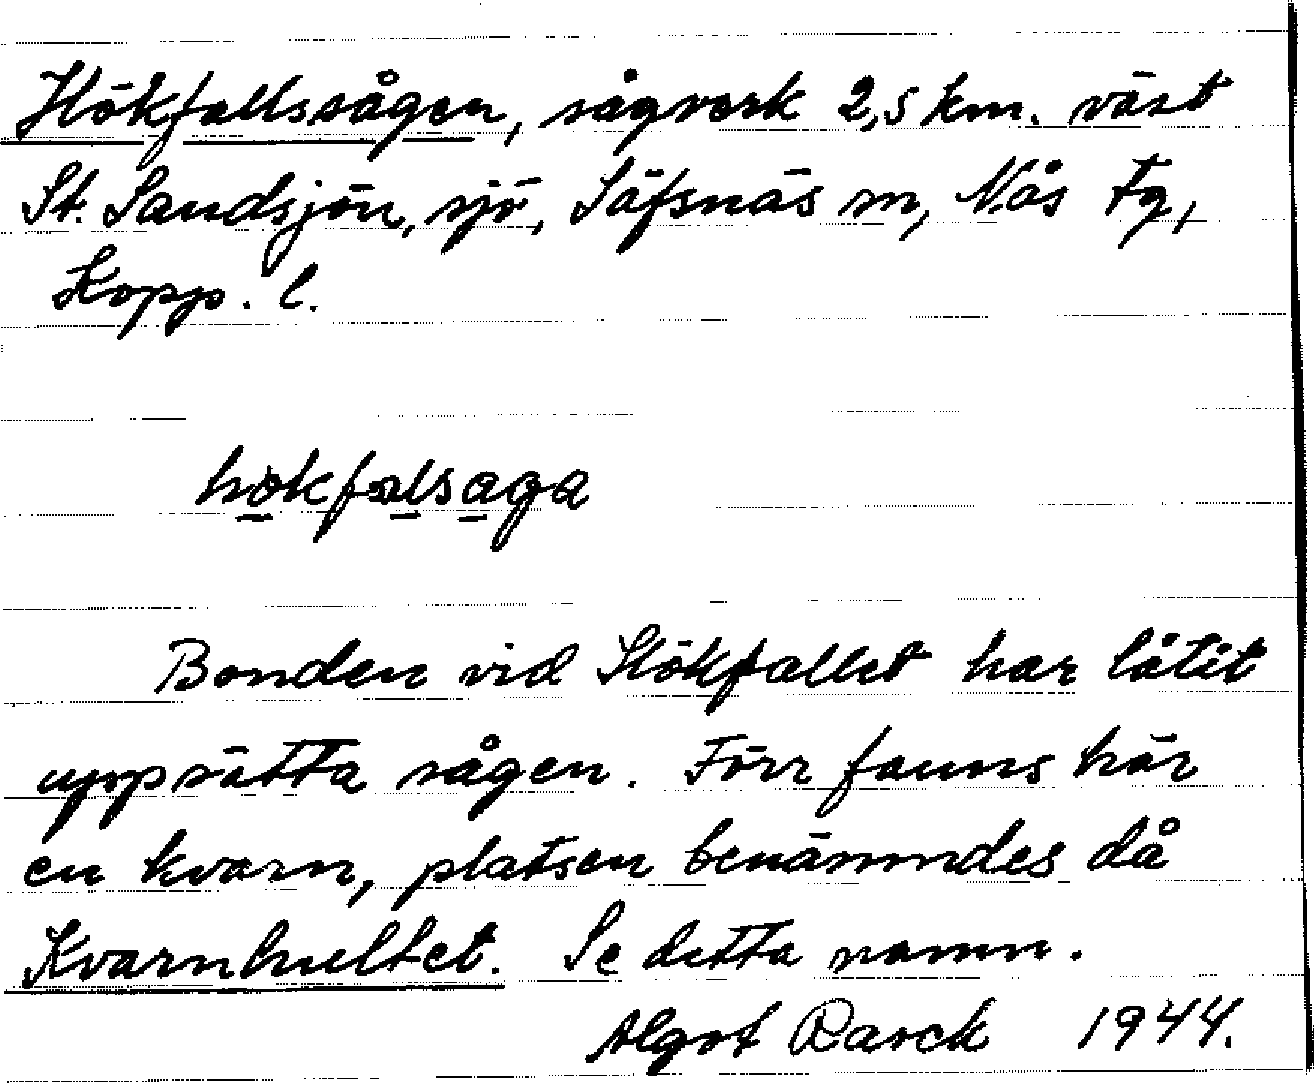 Hökfallssågen, sågverk 2,5 km. väst
St. Sandsjön, sjö, Säfsnäs sn, Nås Fg,
Kopp. l.
hökfalsaga
Bonden vid Hökfallet har låtit
uppsätta sågen. Förr fanns här
en kvarn, platsen benämndes då
Kvarnhultet. Se detta namn.
Algot Rasck 1944.